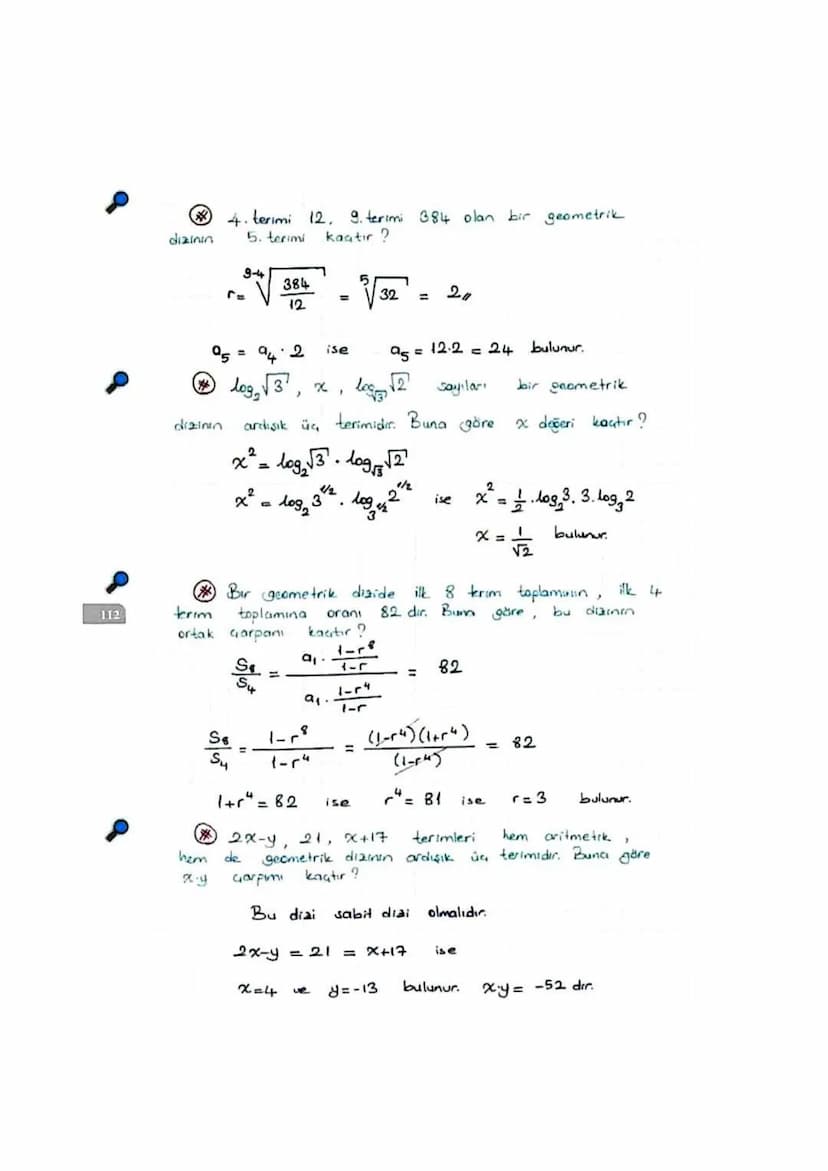 ⊛ 4. terimi 12, 9. terimi 384 olan bir geometrik
dizinin 5. terimi kaçtır?
r = ⁹⁻⁴√(384/12) = ⁵√32 = 2//
a₅ = a₄ · 2 ise a₅ = 12·2 = 24 bulunur.
⊛ log₂√3, x, log_√3 √2 sayıları bir geometrik
dizinin ardışık üç terimidir. Buna göre x değeri kaçtır?
x² = log₂√3 · log_√3 √2
x² = log₂3^1/2 · log_3^1/2 2^1/2 ise x² = 1/2 · log₂3 . 3. log₃2
x = 1/√2 bulunur.
⊛ Bir geometrik dizide ilk 8 terim toplamının, ilk 4
112
terim toplamına oranı 82 dir. Buna göre, bu dizinin
ortak çarpanı kaçtır?
S₈/S₄ = (a₁ · (1-r⁸)/(1-r))/(a₁ · (1-r⁴)/(1-r)) = 82
S₈/S₄ = (1-r⁸)/(1-r⁴) = (1-r⁴)(1+r⁴)/(1-r⁴) = 82
1+r⁴ = 82 ise r⁴ = 81 ise r = 3 bulunur.
⊛ 2x-y, 21, x+17 terimleri hem aritmetik,
hem de geometrik dizinin ardışık üç terimidir. Buna göre
x·y çarpımı kaçtır?
Bu dizi sabit dizi olmalıdır.
2x-y = 21 = x+17 ise
x=4 ve y=-13 bulunur. x·y = -52 dir.